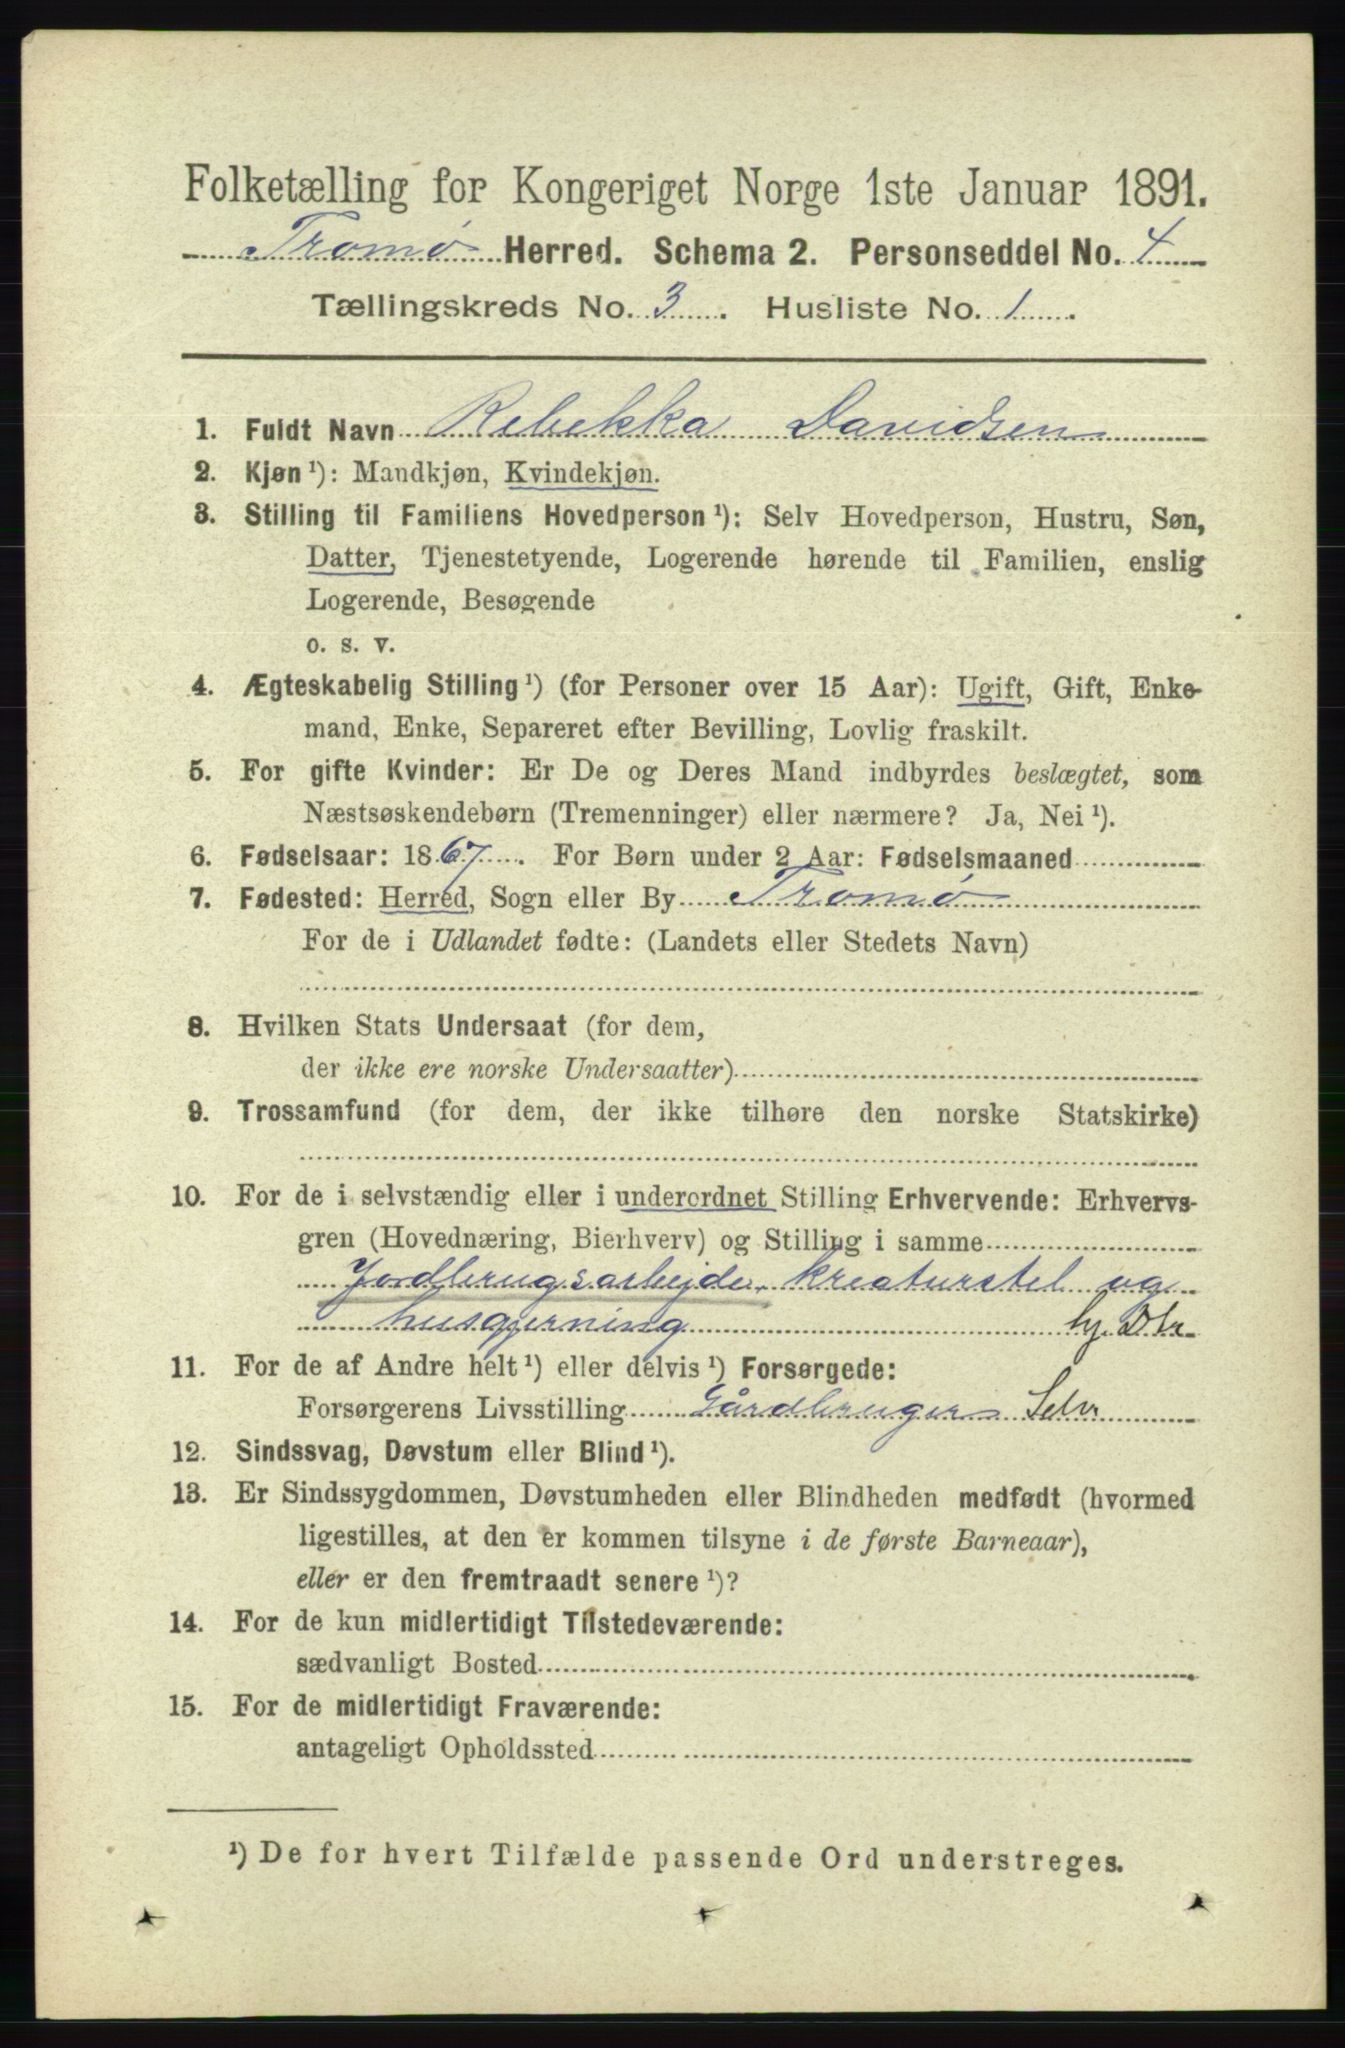 Folketælling for Kongeriget Norge 1ste Januar 1891.
Tromø Herred. Schema 2. Personseddel No. 4
Tællingskreds No. 3. Husliste No. 1.
1. Fuldt Navn Rebekka Davidsen
2. Kjøn ¹): Mandkjøn, Kvindekjøn.
3. Stilling til Familiens Hovedperson ¹): Selv Hovedperson, Hustru, Søn,
Datter, Tjenestetyende, Logerende hørende til Familien, enslig
Logerende, Besøgende
o. s. v.
4. Ægteskabelig Stilling ¹) (for Personer over 15 Aar): Ugift, Gift, Enke-
mand, Enke, Separeret efter Bevilling, Lovlig fraskilt.
5. For gifte Kvinder: Er De og Deres Mand indbyrdes beslægtet, som
Næstsøskendebørn (Tremenninger) eller nærmere? Ja, Nei ¹).
6. Fødselsaar: 1867. For Børn under 2 Aar: Fødselsmaaned
7. Fødested: Herred, Sogn eller By Tromø
For de i Udlandet fødte: (Landets eller Stedets Navn)
8. Hvilken Stats Undersaat (for dem,
der ikke ere norske Undersaatter)
9. Trossamfund (for dem, der ikke tilhøre den norske Statskirke)
10. For de i selvstændig eller i underordnet Stilling Erhvervende: Erhvervs-
gren (Hovednæring, Bierhverv) og Stilling i samme
Jordbrugsarbejde, kreaturstel og
husgjerning hj. Dtr
11. For de af Andre helt ¹) eller delvis ¹) Forsørgede:
Forsørgerens Livsstilling Gårdbruger Selv
12. Sindssvag, Døvstum eller Blind ¹).
13. Er Sindssygdommen, Døvstumheden eller Blindheden medfødt (hvormed
ligestilles, at den er kommen tilsyne i de første Barneaar),
eller er den fremtraadt senere ¹)?
14. For de kun midlertidigt Tilstedeværende:
sædvanligt Bosted
15. For de midlertidigt Fraværende:
antageligt Opholdssted
¹) De for hvert Tilfælde passende Ord understreges.